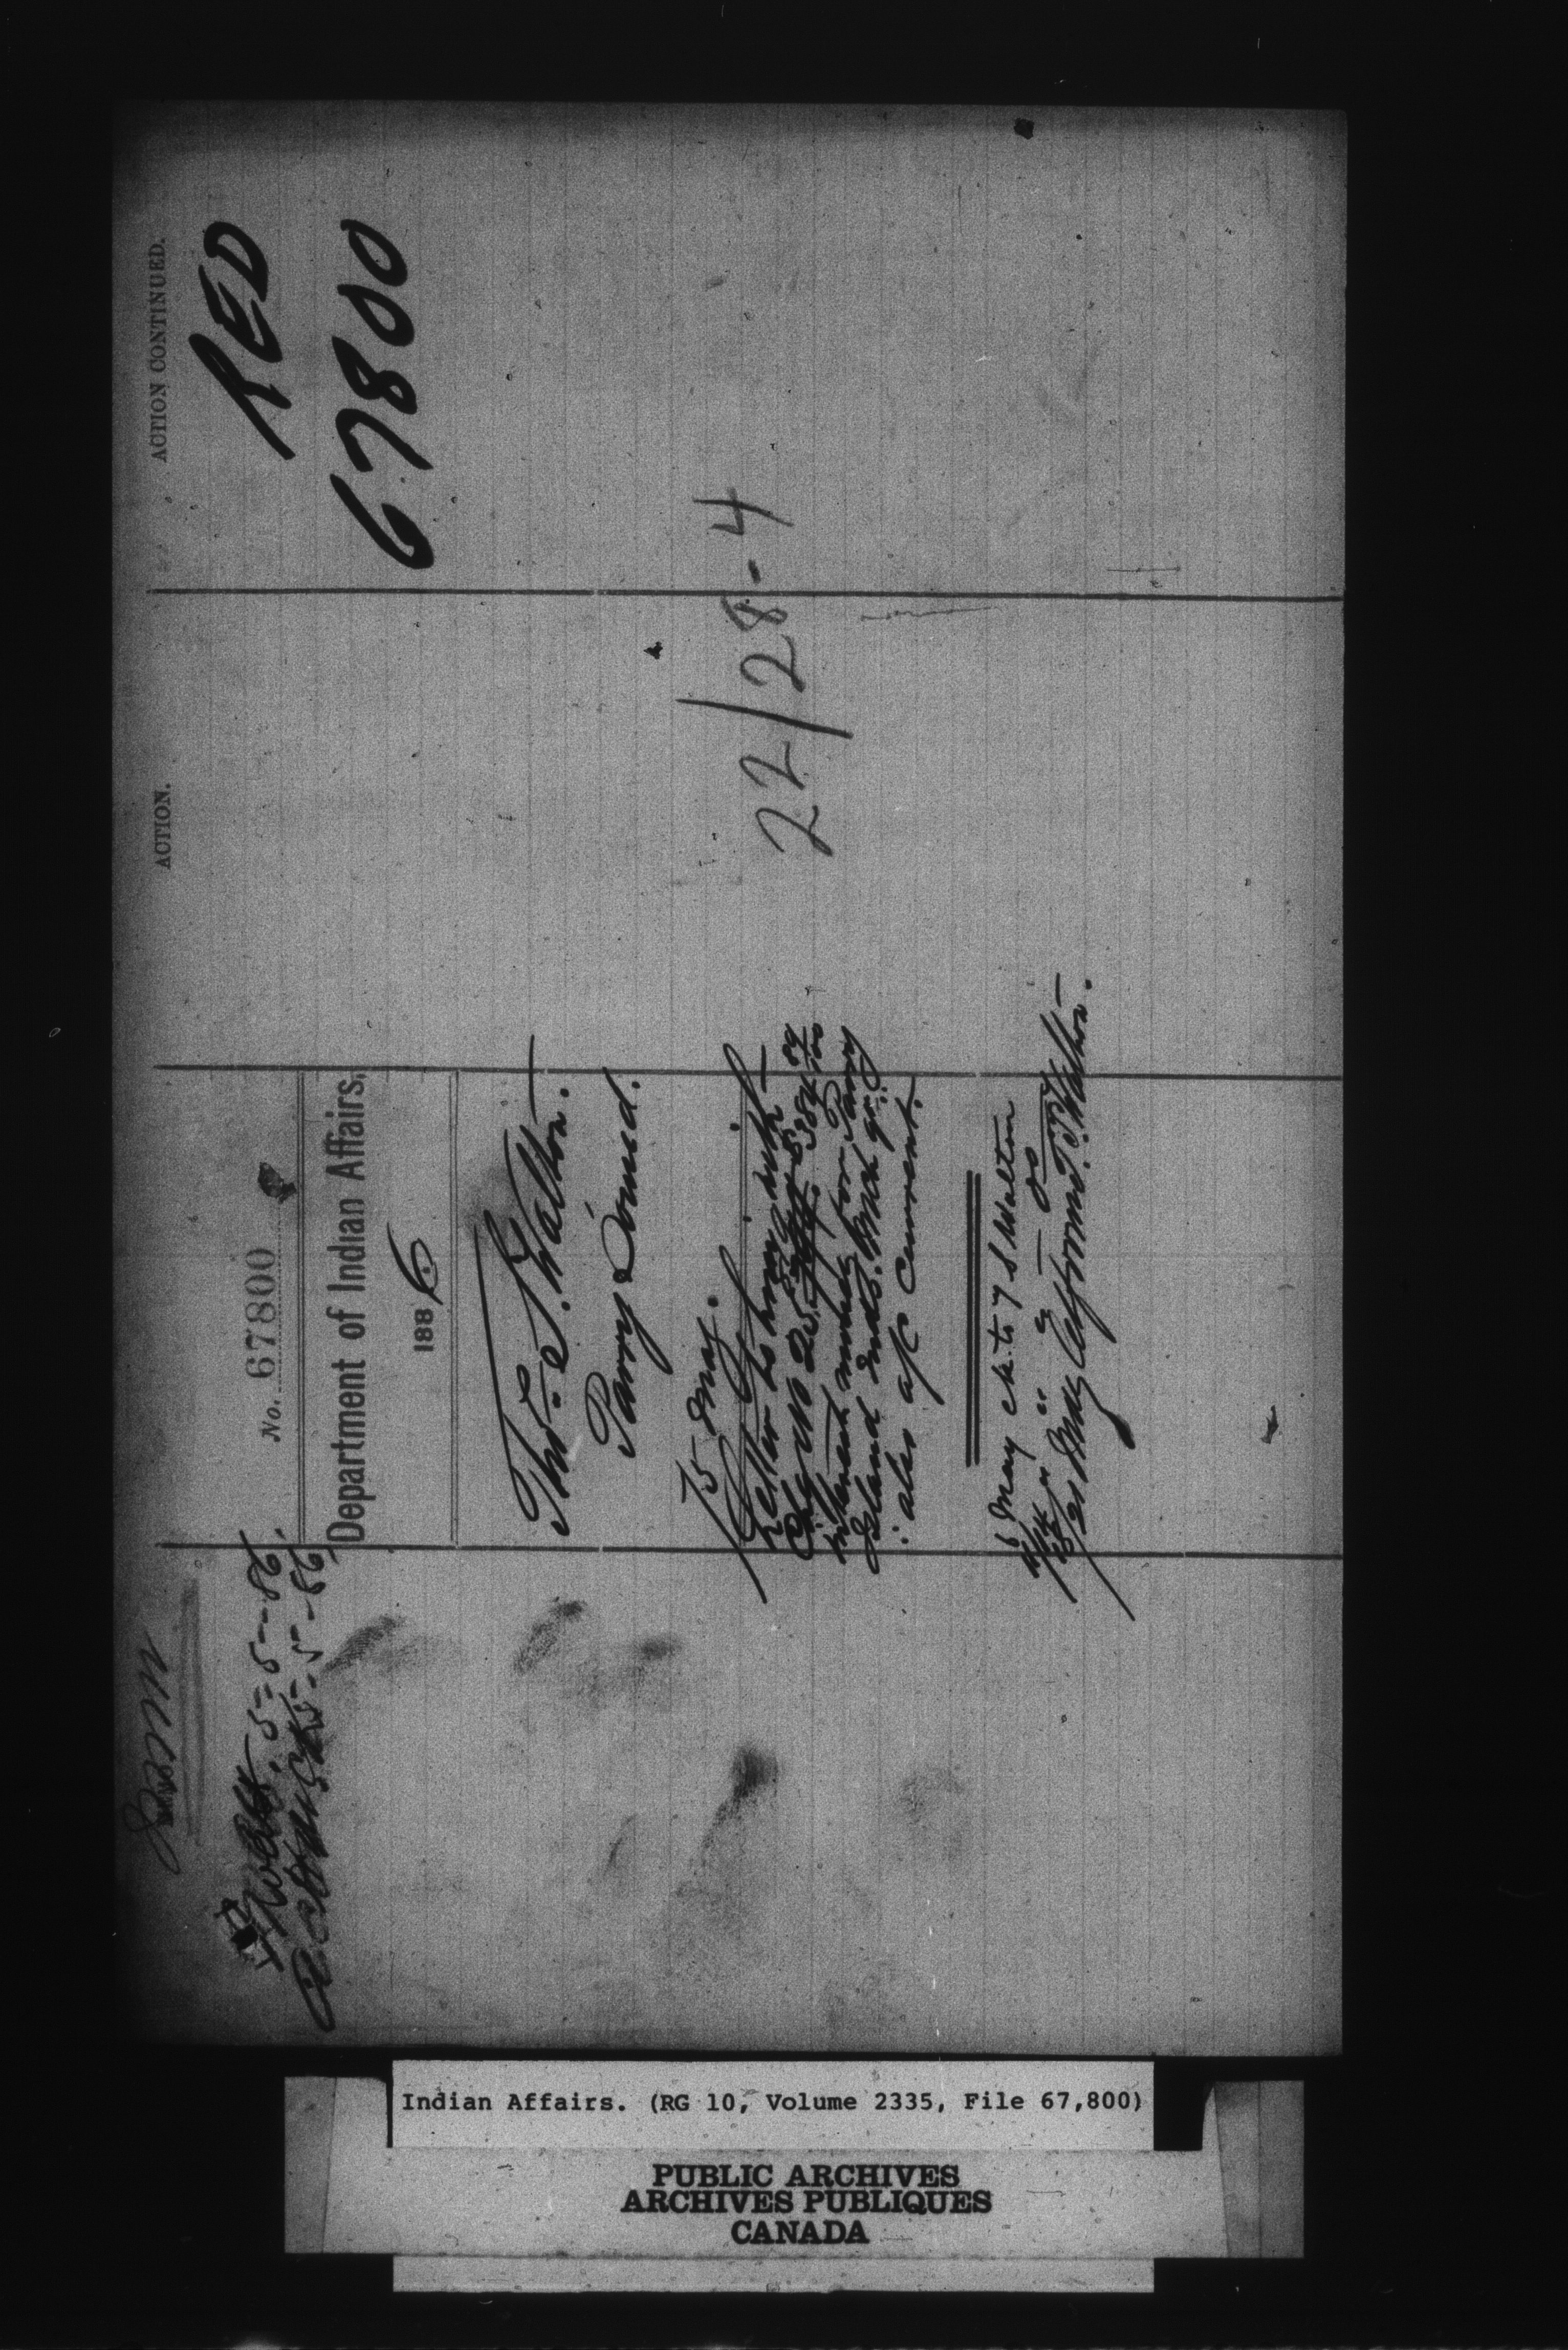 No. 67800
Department of Indian Affairs.
1886
Thos. S. Walton.
Parry Sound.
15 May.
Letter to him with
Chq No 25 for $384
interest money for Parry
Island Inds. Mch qr.
also a/c current.
May ck. to T S Walton
21 May Ackgmt. T. S. Walton.
5-5-86
5-5-86
ACTION.
ACTION CONTINUED.
RED
67800
22/28-4
Indian Affairs. (RG 10, Volume 2335, File 67,800)
PUBLIC ARCHIVES
ARCHIVES PUBLIQUES
CANADA